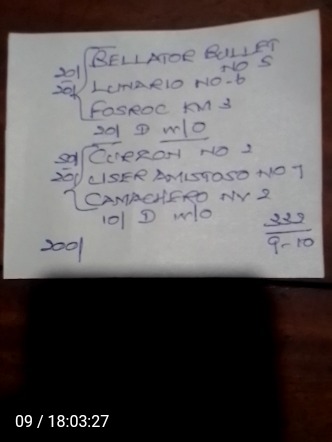 BELLATOR BULLET
NO 5
20/
20/ LUNARIO NO-6
FOSROC KM 3
20/ D w/o
50/ CURRON NO 2
20/ USER AMISTOSO NO 7
CAMACHERO Nr 2
10/ D w/o
200/
222
9-10
09 / 18:03:27